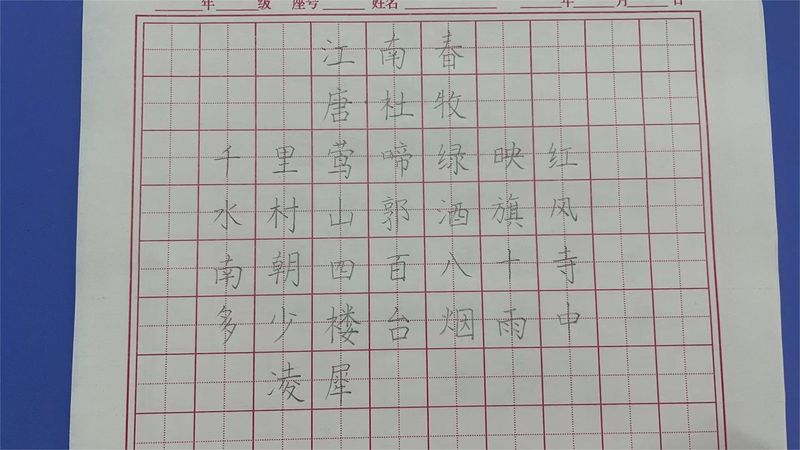 年 级 座号 姓名 年 月 日
江南春
唐 杜牧
千里莺啼绿映红
水村山郭酒旗风
南朝四百八十寺
多少楼台烟雨中
凌犀